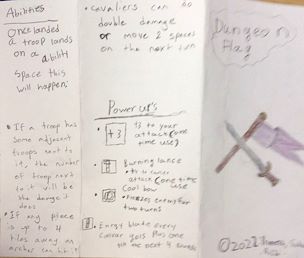 Abilities
Once landed
a troop lands
on a ability
space this
will happen:
• If a troop has
some adjacent
troops next to
it, the number
of troop next
to it will be
the damage it
does
• If any place
is up to 4
tiles away an
archer can hit it
• cavaliers can do
double damage
or move 2 spaces
on the next turn
Power up's
+3
+3 to your
attack (one
time use)
• Burning lance
attack (one time
use
• Cool bow
• Freezes enemy for
two turns
• Energy blade every
goes plus one
the next 4
Dungeon
Flag
©2022